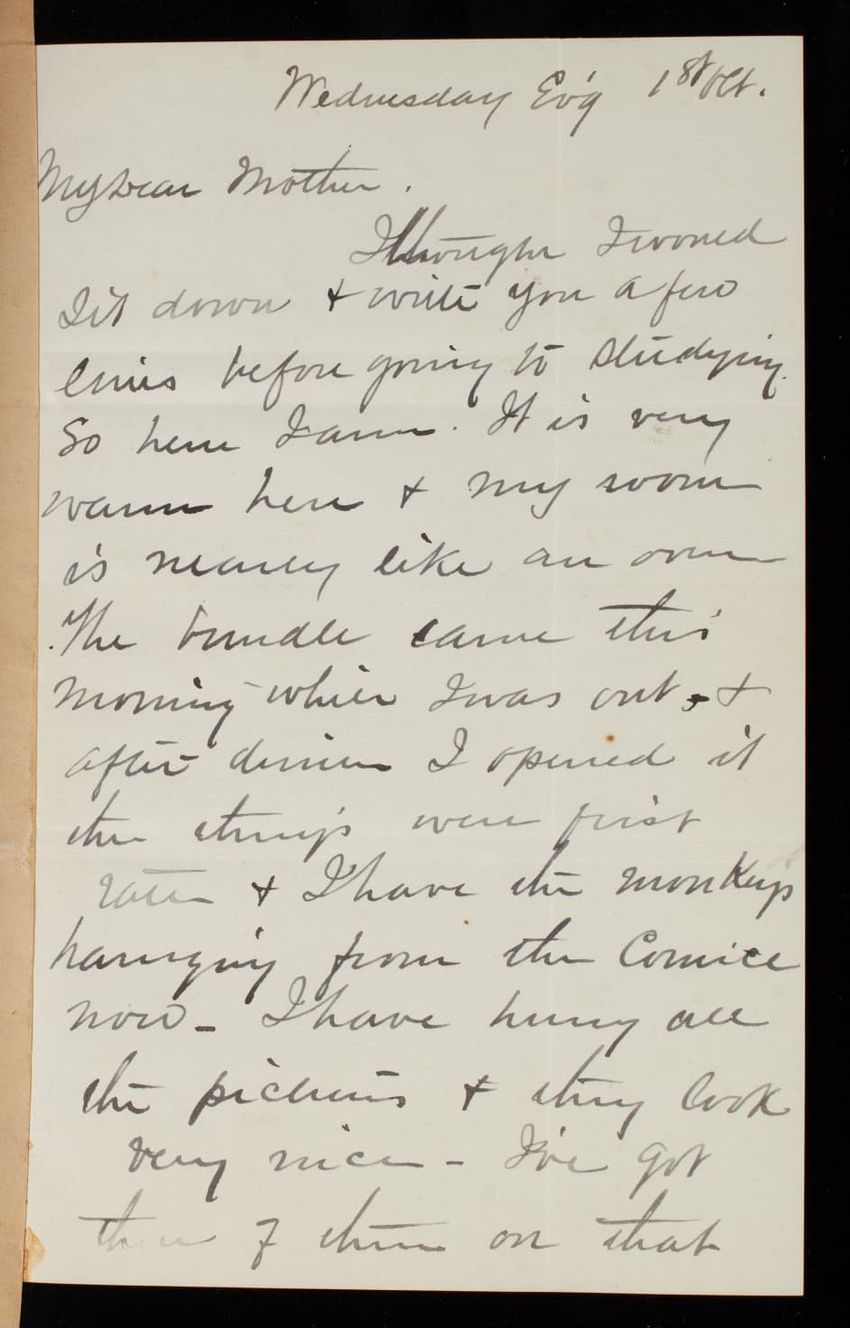 Wednesday Ev'g 1st Oct.
My dear Mother.
I thought I would
sit down & write you a few
lines before going to studying.
So here I am. It is very
warm here & my room
is nearly like an oven
. The bundle came this
morning while I was out, &
after dinner I opened it
the things were first
rate & I have the monkeys
hanging from the Cornice
now - I have hung all
the pictures & they look
very nice - I've got
three of them on that